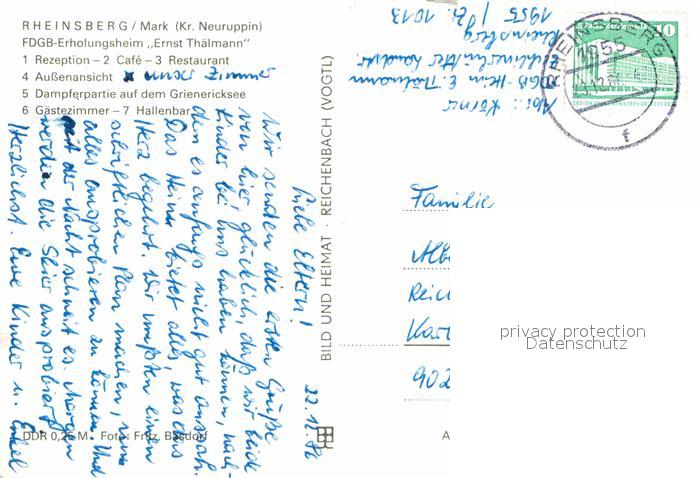 RHEINSBERG / Mark (Kr. Neuruppin)
FDGB-Erholungsheim „Ernst Thälmann"
1 Rezeption – 2 Café – 3 Restaurant
4 Außenansicht x unser Zimmer
5 Dampferpartie auf dem Grienericksee
6 Gästezimmer – 7 Hallenbad
22.12.82
Liebe Eltern!
Wir senden die ersten Grüße
von hier, glücklich, daß wir beide
Kinder bei uns haben können, nach-
dem es anfangs nicht gut aussah.
Das Heim bietet alles, was das
Herz begehrt. Wir mußten einen
schriftlichen Plan machen, um
alles ausprobieren zu können. Und
seit der Nacht schneit es. Morgen
werden die Skier ausprobiert.
Herzlichst Eure Kinder u. Enkel
DDR 0,25 M Foto: Fritz, Basdorf
BILD UND HEIMAT · REICHENBACH (VOGTL)
Abs.: Körner
FDGB-Heim E. Thälmann
Rheinsberg
1955 / Zi. 1013
RHEINSBERG
1955
f
10
Familie
Alb
Reic
Karl
902
A
privacy protection
Datenschutz